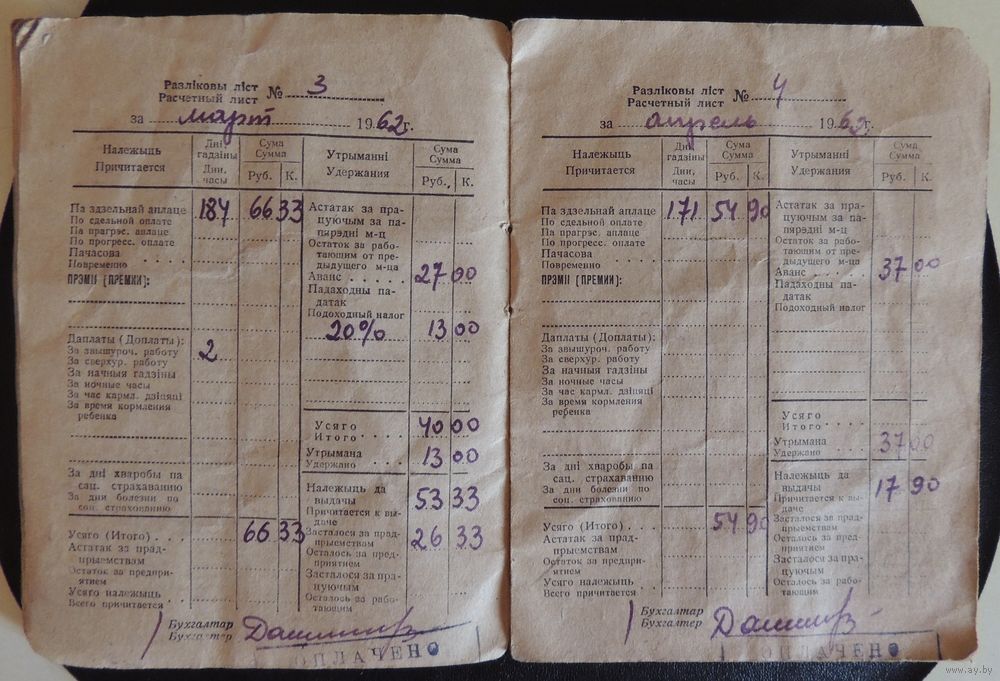 Разліковы ліст
Расчетный лист № 3
за март 1962г.
Належыць
Причитается
Дні, гадзіны
Дни, часы
Сума
Сумма
Руб. К.
Утрыманні
Удержания
Сума
Сумма
Руб. К.
Па здзельнай аплаце 184 66 33
По сдельной оплате
Па прагрэс. аплаце
По прогресс. оплате
Пачасова
Повременно
ПРЭМІІ [ПРЕМИИ]:
Даплаты (Доплаты):
За звышуроч. работу 2
За сверхур. работу
За начныя гадзіны
За ночные часы
За час кармл. дзіцяці
За время кормления
ребенка
За дні хваробы па
сац. страхаванню
За дни болезни по
соц. страхованию
Усяго (Итого) 66 33
Астатак за прад-
прыемствам
Остаток за предпри-
ятием
Усяго належыць
Всего причитается
Астатак за пра-
цуючым за па-
пярэдні м-ц
Остаток за рабо-
тающим от пре-
дыдущего м-ца
Аванс 27 00
Падаходны па-
датак
Подоходный налог
20% 13 00
Усяго
Итого 40 00
Утрымана
Удержано 13 00
Належыць да
выдачы 53 33
Причитается к вы-
даче
Засталося за прад-
прыемствам 26 33
Осталось за пред-
приятием
Засталося за пра-
цуючым
Осталось за рабо-
тающим
Бухгалтар
Бухгалтер
ОПЛАЧЕНО
Разліковы ліст
Расчетный лист № 4
за апрель 1962г.
Належыць
Причитается
Дні, гадзіны
Дни, часы
Сума
Сумма
Руб. К.
Утрыманні
Удержания
Сума
Сумма
Руб. К.
Па здзельнай аплаце 171 54 90
По сдельной оплате
Па прагрэс. аплаце
По прогресс. оплате
Пачасова
Повременно
ПРЭМІІ [ПРЕМИИ]:
Даплаты (Доплаты):
За звышуроч. работу
За сверхур. работу
За начныя гадзіны
За ночные часы
За час кармл. дзіцяці
За время кормления
ребенка
За дні хваробы па
сац. страхаванню
За дни болезни по
соц. страхованию
Усяго (Итого) 54 90
Астатак за прад-
прыемствам
Остаток за предпри-
ятием
Усяго належыць
Всего причитается
Астатак за пра-
цуючым за па-
пярэдні м-ц
Остаток за рабо-
тающим от пре-
дыдущего м-ца
Аванс 37 00
Падаходны па-
датак
Подоходный налог
Усяго
Итого
Утрымана
Удержано 37 00
Належыць да
выдачы 17 90
Причитается к вы-
даче
Засталося за прад-
прыемствам
Осталось за пред-
приятием
Засталося за пра-
цуючым
Осталось за рабо-
тающим
Бухгалтар
Бухгалтер
ОПЛАЧЕНО
www.ay.by